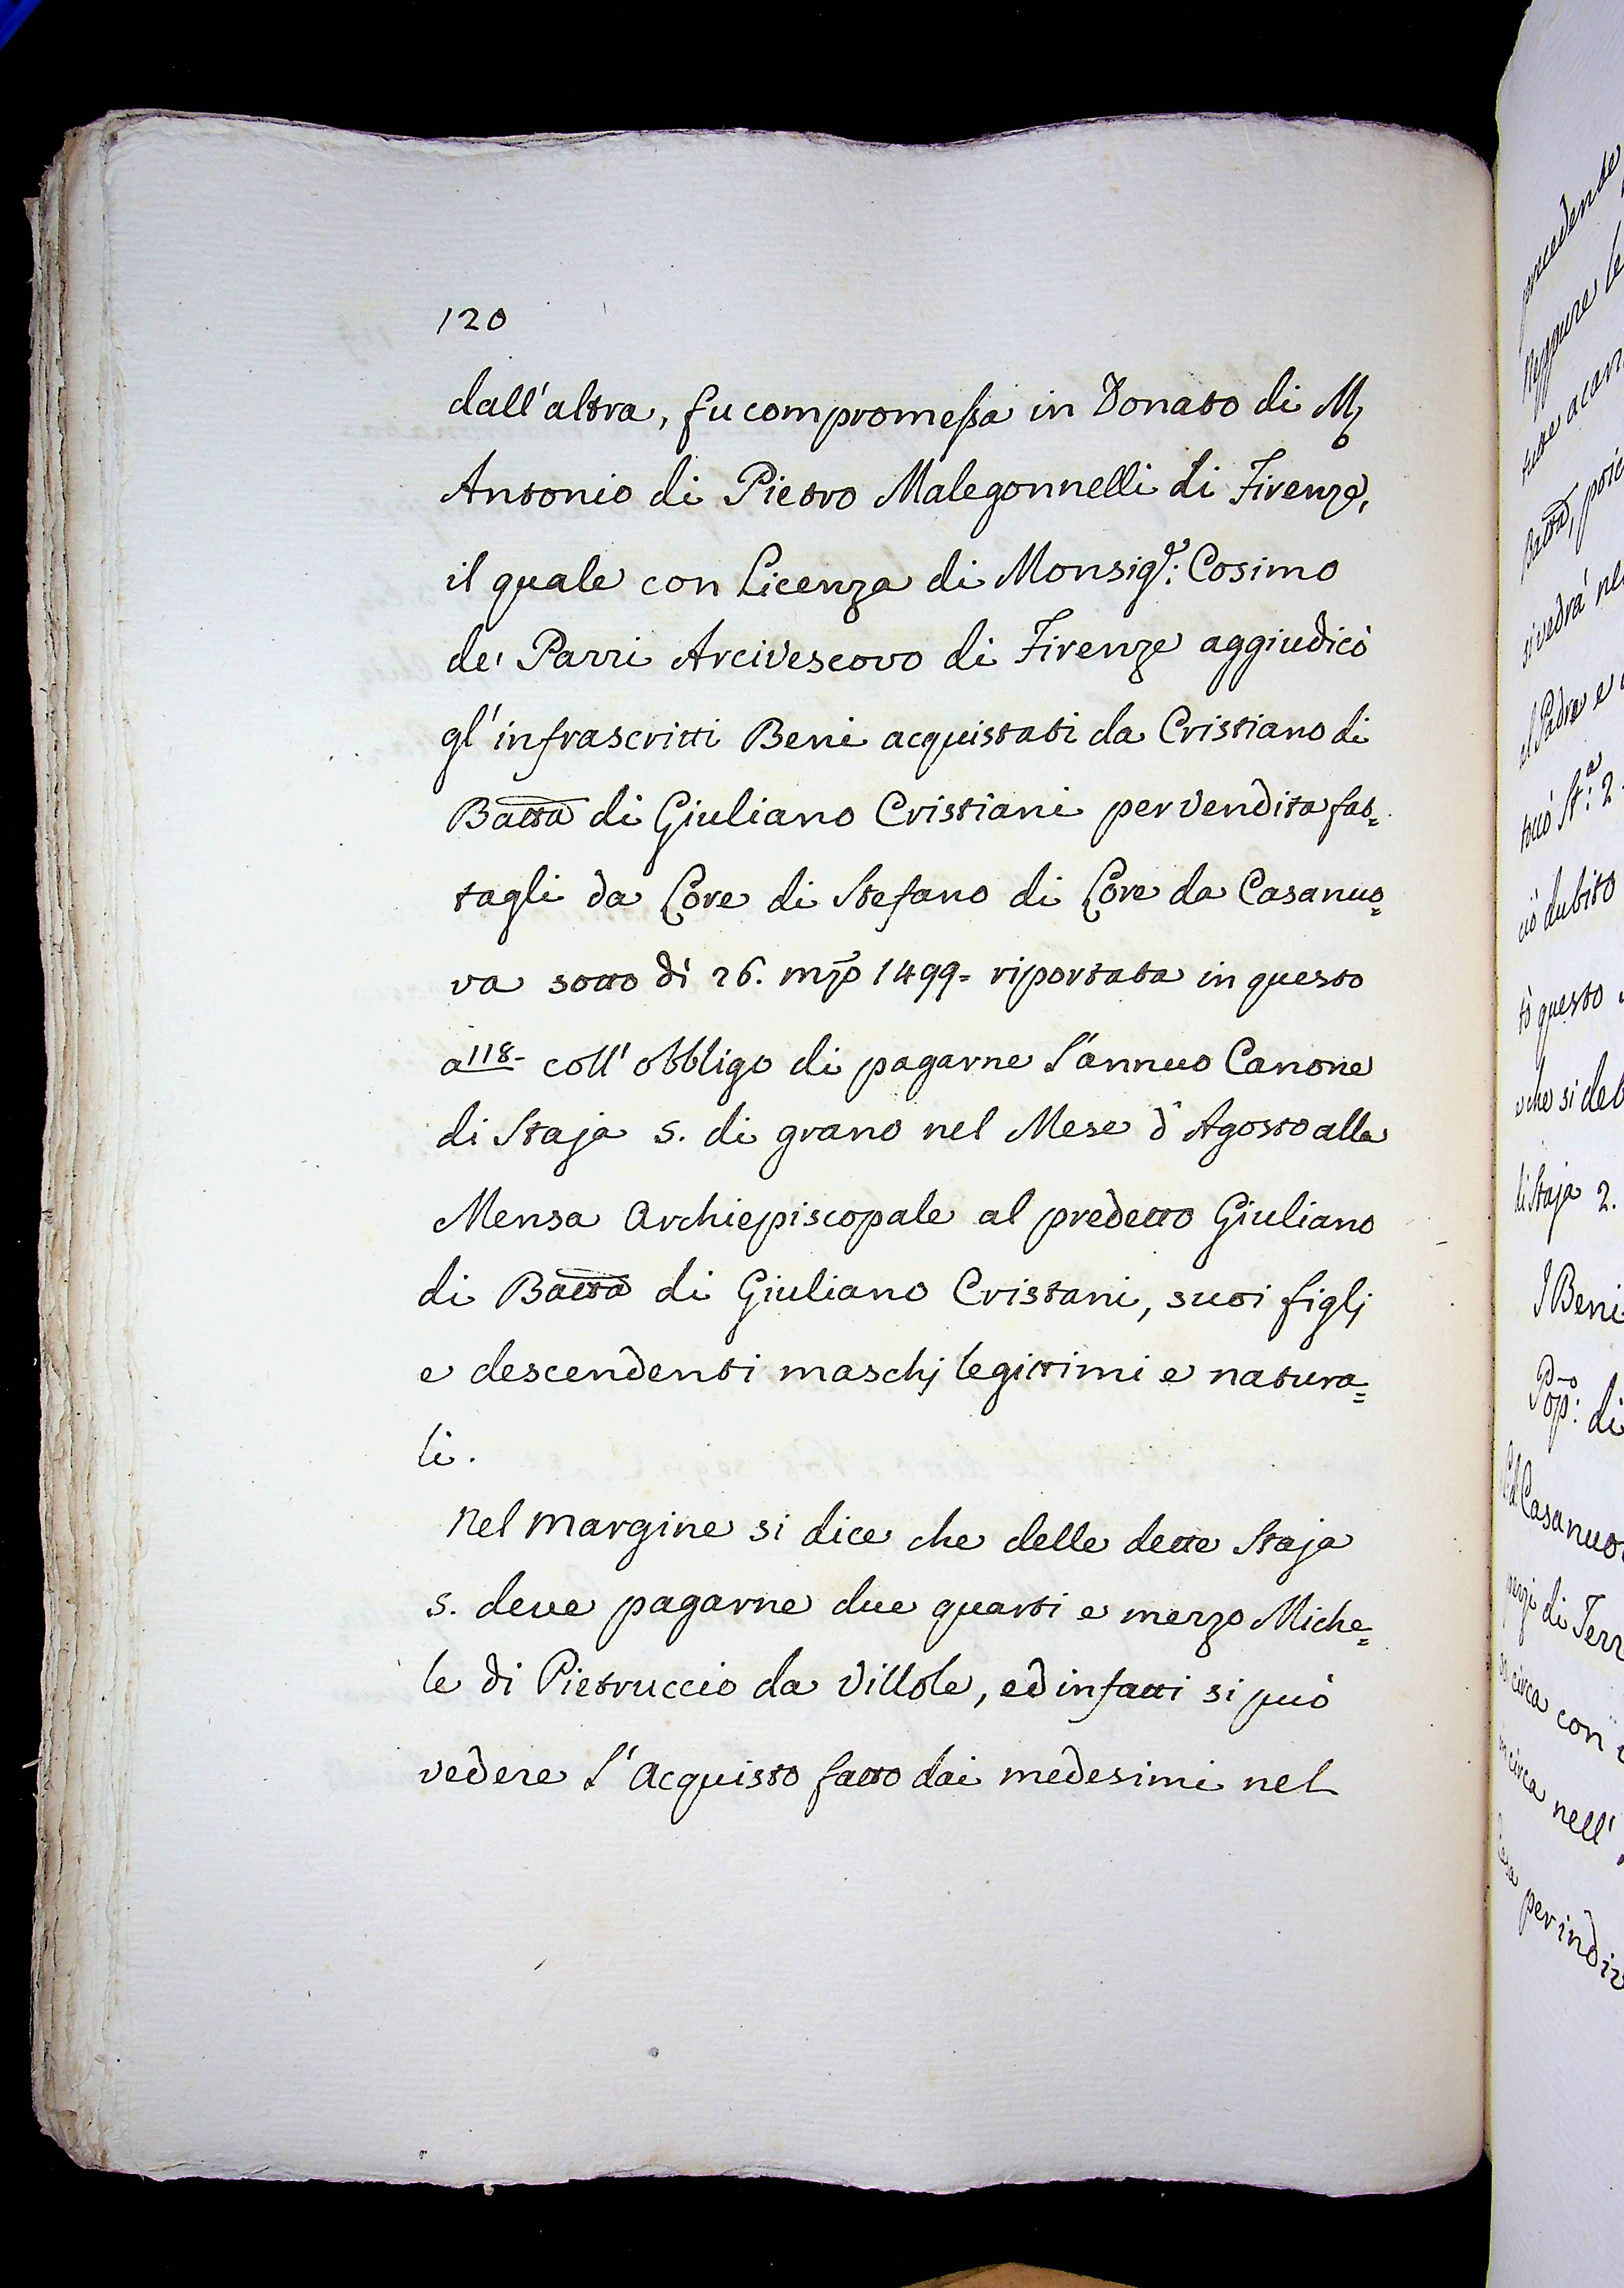 120
dall'altra, fu compromessa in Donato di M
Antonio di Pietro Malegonnelli di Firenze,
il quale con Licenza di Monsig.r: Cosimo
de' Pazzi Arcivescovo di Firenze aggiudicò
gl'infrascritti Beni acquistati da Cristiano di
Batta di Giuliano Cristiani per vendita fat=
tagli da Core di Stefano di Core da Casanuo=
va sotto dì 26. mzo 1499= riportata in questo
a 118- coll'obbligo di pagarne l'annuo Canone
di Staja 5. di grano nel Mese d'Agosto alla
Mensa Archiepiscopale al predetto Giuliano
di Batta di Giuliano Cristani, suoi figlj
e descendenti maschj legittimi e natura=
li.
Nel margine si dice che delle dette Staja
5. deve pagarne due quarti e mezzo Miche=
le di Pietruccio da Villole, ed infatti si può
vedere l'Acquisto fatto dai medesimi nel
precedente
Neppure le
Batta, poic
si vedrà nel
el Padre e
St:a 2.
dubito
tò questo
che si deb
di Staja 2.
I Beni
Pop:o di
Casanuo
pezzi di Terr
circa con
circa nell'
per indiv